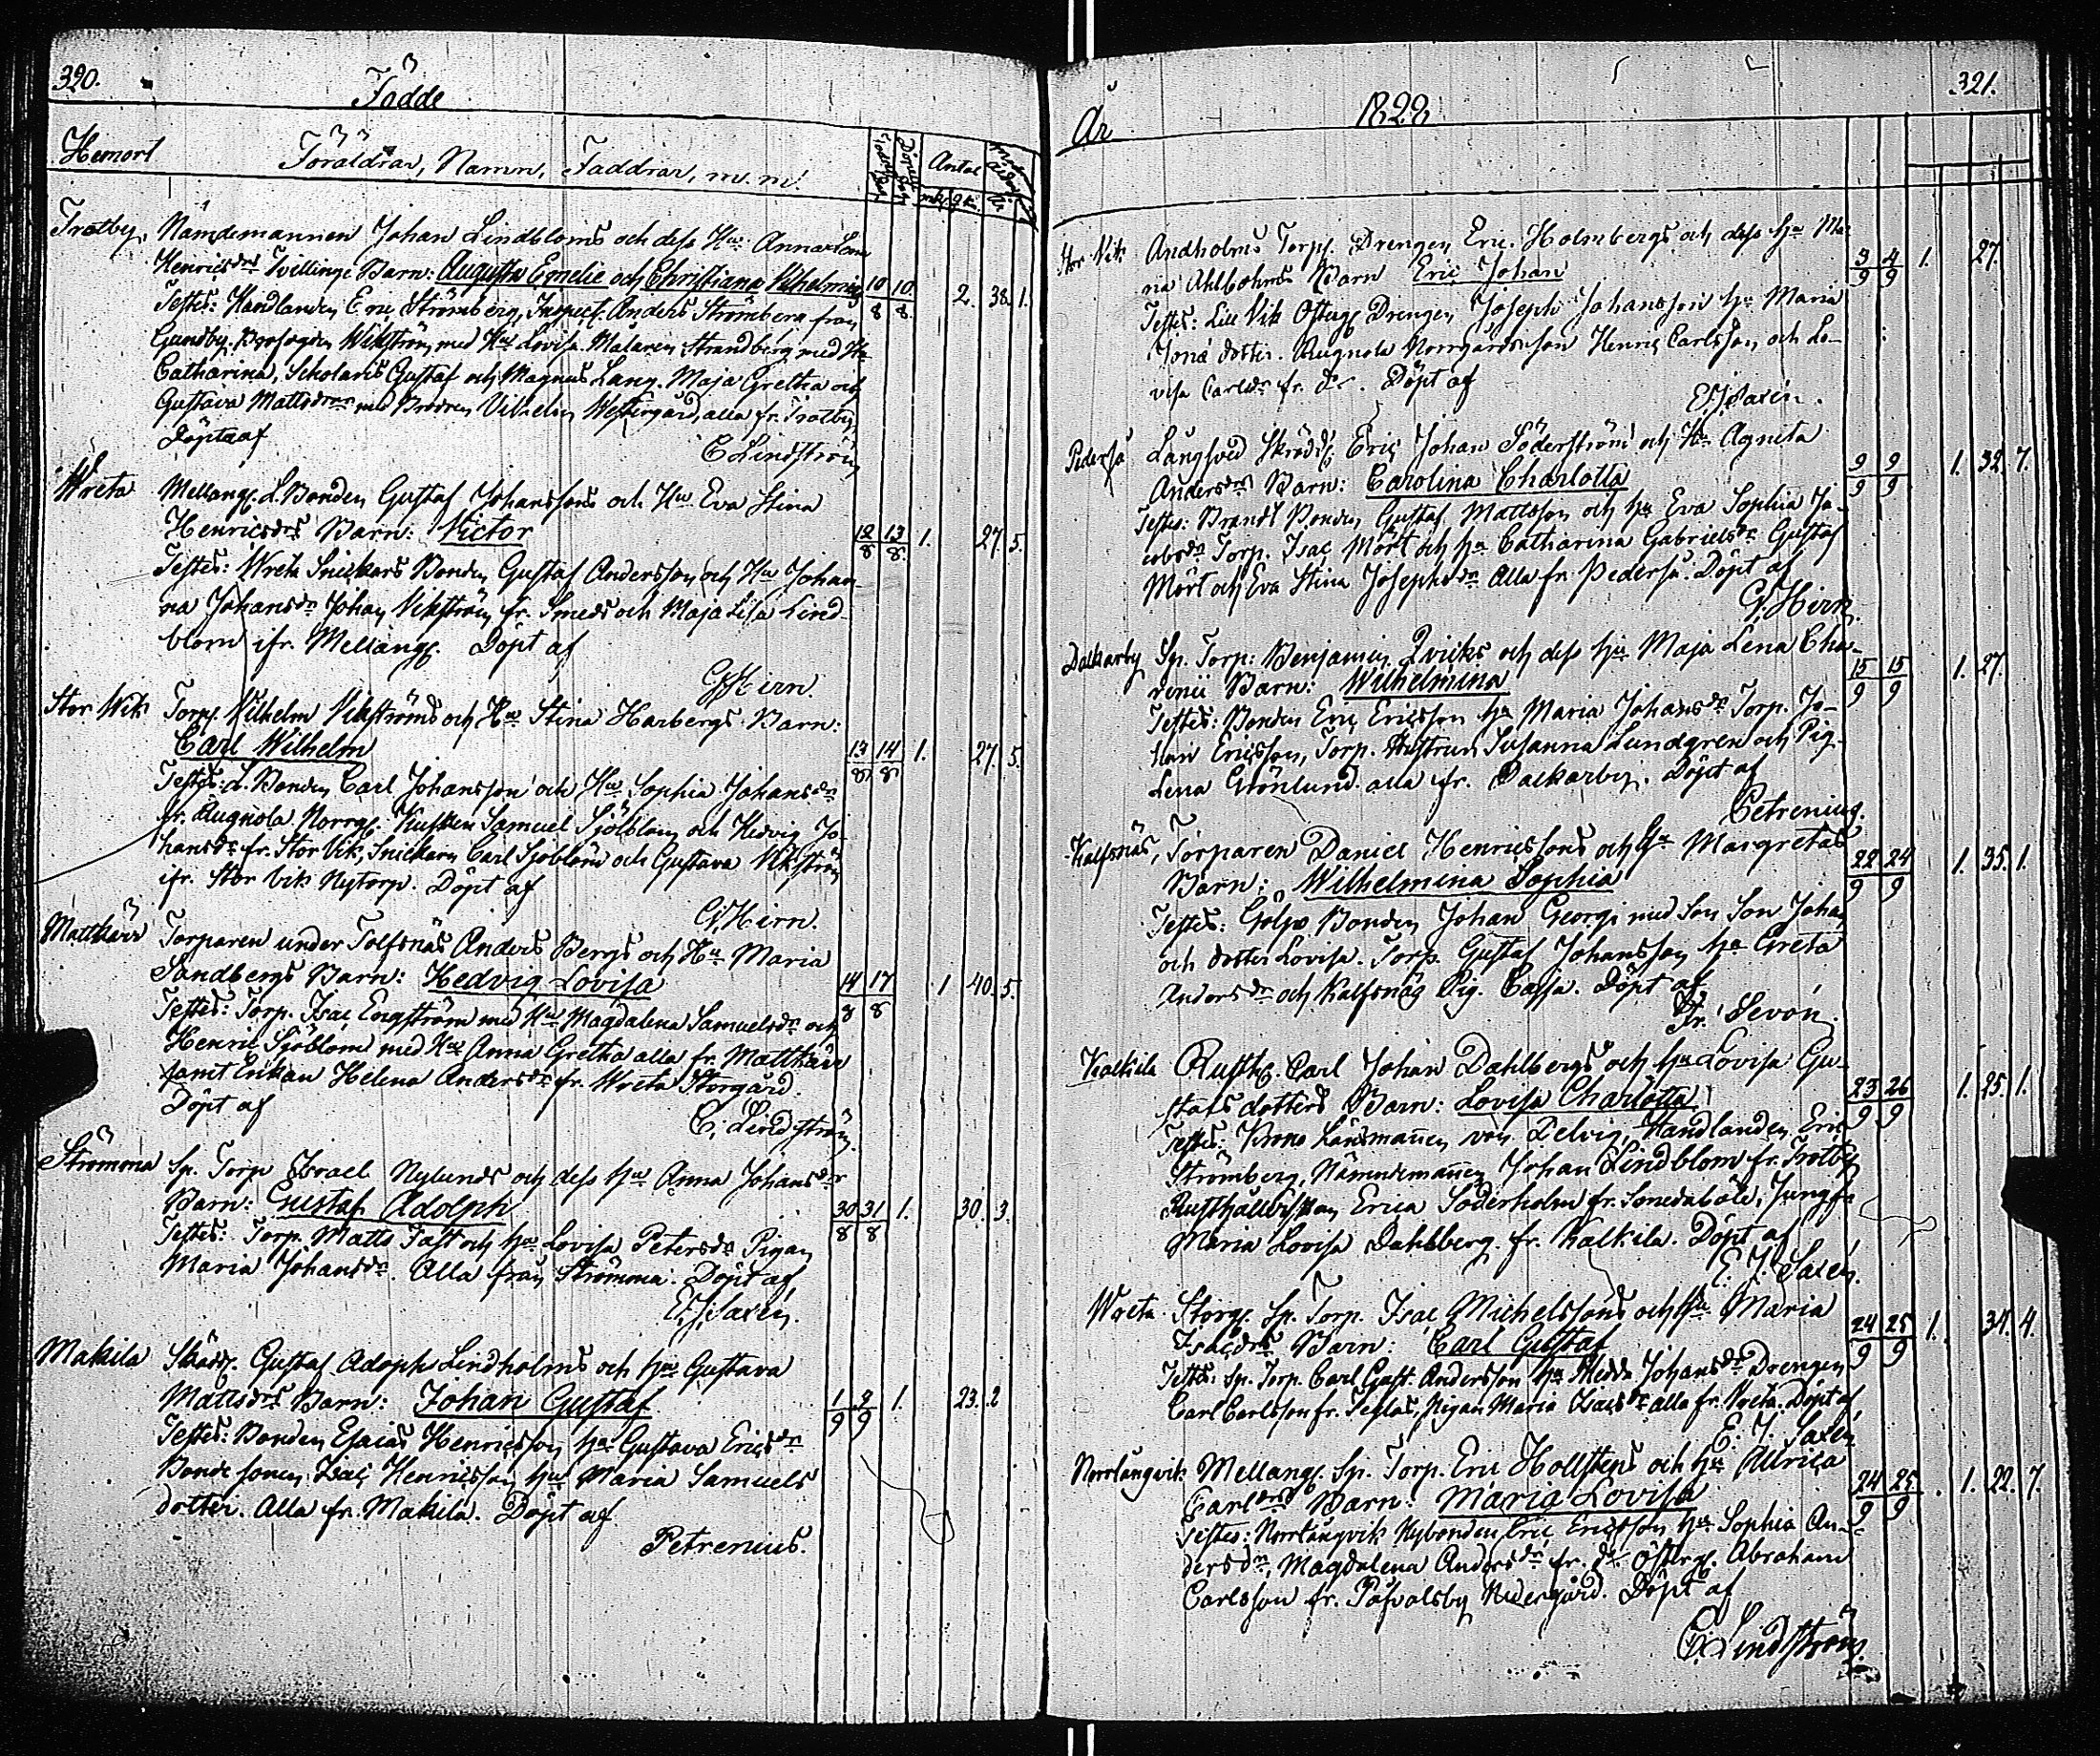 320.
Födde
Hemort
Föräldrar, Namn, Faddrar, m. m.
Antal
mk. qk.
År
Trotby, Nämdemannen Johan Lindbloms och dess Hu: Anna Lena
Henricsdrs Tvillinge Barn: Augusta Emelie och Christiana Vilhelmina 10/8 10/8. 2. 38. 1.
Testes: Handlanden Eric Strömberg, Inspect. Anders Strömberg från
Gundby. Wikström med Hu Lovisa. Målaren Strandberg med Hu
Catharina, Scholaris Gustaf och Magnus Lang. Maja Gretha och
Gustava Mattsdrar med Brodren Vilhelm Westergård, alla fr. Trotby,
Döpta af
C Lindström
Wreta Mellang. L. Bonden Gustaf Johanssons och Hu Eva Stina
Henricsdrs Barn: Victor 12/8 13/8. 1. 27. 5.
Testes: Wreta Snickars Bonden Gustaf Andersson och Hu Johan-
na Johansdr Johan Vikström fr. Smeds och Maja Lisa Lind-
blom ifr. Mellang. Döpt af
G. Hirn.
Stor Wik Torp. Wilhelm Vikströms och Hu Stina Harbergs Barn:
Carl Wilhelm 13/8 14/8 1. 27. 5.
Testes: L. Bonden Carl Johansson och Hu Sophia Johansdr
fr. Rugnola Norrg. Kusken Samuel Sjöblom och Hedvig Jo-
hansdr fr. Stor Vik, Snickarn Carl Sjöblom och Gustava Vikström
ifr. Stor Vik Nytorp. Döpt af
G. Hirn.
Mattkärr Torparen under Tolfsnäs Anders Bergs och Hu Maria
Sandbergs Barn: Hedvig Lovisa 14/8 17/8 1 40. 5.
Testes: Torp. Isac Engström med Hu Magdalena Samuelsdr och
Henric Sjöblom med Hu Anna Gretha alla fr. Mattkärr
samt Enkan Helena Andersdr fr. Wreta Storgård.
Döpt af
C. Lindström
Strömma Sp. Torp Israel Nylunds och dess hu Anna Johansdr
Barn: Gustaf Adolph 30/8 31/8 1. 30. 3.
Testes: Torp. Matts Fast och hu Lovisa Petersdr Pigan
Maria Johansdr. Alla från Strömma. Döpt af
E. J. Saxén.
Makila Skädd. Gustaf Adoph Lindholms och hu Gustava
Mattsdrs Barn: Johan Gustaf 1/9 2/9 1. 23. 2
Testes: Bonden Esaias Henricsson hu Gustava Ericsdr
Bonde sonen Isac Henricsson hu Maria Samuels
dotter. Alla fr. Makila. Döpt af
Petrenius.
321.
År 1822
Stor Vik Andholms Torp. Drengen Eric Holmbergs och dess hu Ma-
ria Ahlbohms Barn Eric Johan 3/9 4/9 1. 27.
Testes: Lill Vik Osterg Drengen Joseph Johansson hu Maria
Jona dotter. Rugnola Norrgårdssson Henric Carlsson och Lo-
visa Carlsdr fr. do. Döpt af
E. J. Saxén.
Pederså Langsved Skrädd. Eric Johan Söderström och Hu Agneta
Andersdrs Barn: Carolina Charlotta 9/9 9/9 1. 32. 7.
Testes: Brands Bonden Gustaf Mattsson och hu Eva Sophia Ja-
cobsdr Torp. Isac Mört och hu Catharina Gabrielsdr Gustaf
Mört och Eva Stina Josephsdr Alla fr. Pederså. Döpt af
G. Hirn
Dalkarby Sp. Torp: Benjamin Qvicks och dess hu Maja Lena Cha-
renii Barn: Wilhelmina 15/9 15/9 1. 27.
Testes: Bonden Eric Ericsson hu Maria Johansdr Torp. Jo-
han Ericsson, Torp. Hustrun Susanna Lundgren och Pig.
Lena Grönlund alla fr. Dalkarby. Döpt af
Petrenius.
Kalfsnäs, Torparen Daniel Henricssons och Hu Margretas
Barn: Wilhelmina Sophia 22/9 24/9 1. 35. 1.
Testes: Golpo Bonden Johan Georgi med son Son Johan
och dotter Lovisa. Torp. Gustaf Johansson hu Greta
Andersdr och Kalfsnäs Pig. Cajsa. Döpt af
Fr. Sevón.
Kalkila Rusth. Carl Johan Dahlbergs och hu Lovisa Gu-
stafs dotters Barn: Lovisa Charlotta 23/9 26/9 1. 25. 1.
Testes: Krono Länsmannen von Delvig, Handlanden Eric
Strömberg, Nämndemannen Johan Lindblom fr. Trotby
Rusthållerskan Erica Söderholm fr. Smedaböle, Jungfr
Maria Lovisa Dahlberg fr. Kalkila. Döpt af
E. J. Saxén.
Wreta Storg. Sp. Torp. Isac Michelssons och hu Maria
Isacsdrs Barn: Carl Gustaf 24/9 25/9 1. 34. 4.
Testes: Sp. Torp. Carl Gust. Andersson hu Hedda Johansdr Drengen
Carl Carlsson fr. Teslas, Pigan Maria Isacsdr alla fr. Vreta. Döpt af
E. J. Saxén
Norrlångvik Mellang. Sp. Torp. Eric Hollstens och hu Allrica
Carlsdrs Barn: Maria Lovisa 24/9 25/9. 1. 22. 7.
Testes: Norrlångvik Nybonden Eric Ericsson hu Sophia An-
dersdr, Magdalena Andersdr fr. do Österg. Abraham
Carlsson fr. Påfvalsby Nedergård. Döpt af
C. Lindström